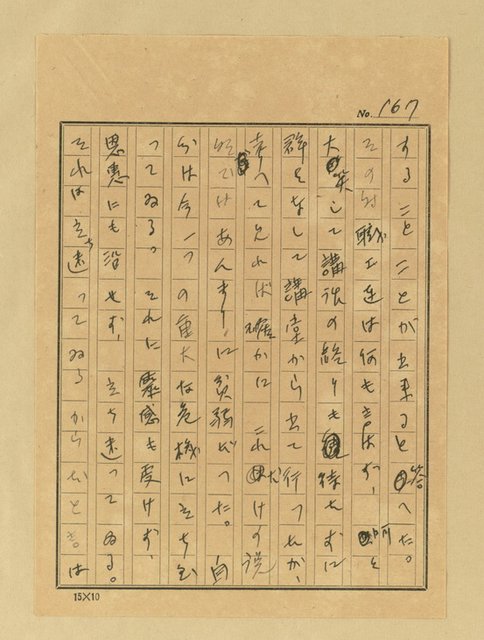 No. 167
することことが出来ると答へた。
その時職工達は何も言はず、呵と
大笑して講話の終りも待たずに
群をなして講堂から出て行つたが、
考へて見れば確かに これだけの説
明ではあんまりに貧弱だつた。 自
分は今一つの重大な危機に立ち至
つてゐる。 それに霊感も受けず、
恩恵にも浴せず、 立ち遠つてゐる。
それは立ち遠つてゐるからだと言は
15×10